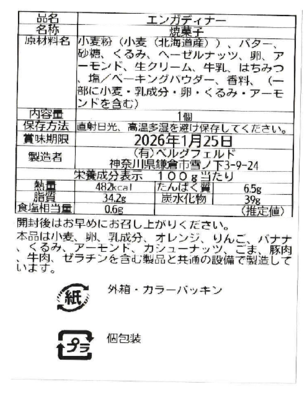 品名 エンガディナー
名称 焼菓子
原材料名 小麦粉(小麦(北海道産))、バター、
砂糖、くるみ、ヘーゼルナッツ、卵、ア
ーモンド、生クリーム、牛乳、はちみつ
、塩／ベーキングパウダー、香料、(一
部に小麦・乳成分・卵・くるみ・アーモ
ンドを含む)
内容量 1個
保存方法 直射日光、高温多湿を避け保存してください。
賞味期限 2026年1月25日
製造者 (有)ベルグフェルド
神奈川県鎌倉市雪ノ下3-9-24
栄養成分表示 100g当たり
熱量 482kcal たんぱく質 6.5g
脂質 34.2g 炭水化物 39g
食塩相当量 0.6g (推定値)
開封後はお早めにお召し上がりください。
本品は小麦、卵、乳成分、オレンジ、りんご、バナナ
、くるみ、アーモンド、カシューナッツ、ごま、豚肉
、牛肉、ゼラチンを含む製品と共通の設備で製造して
います。
紙 外箱・カラーパッキン
プラ 個包装